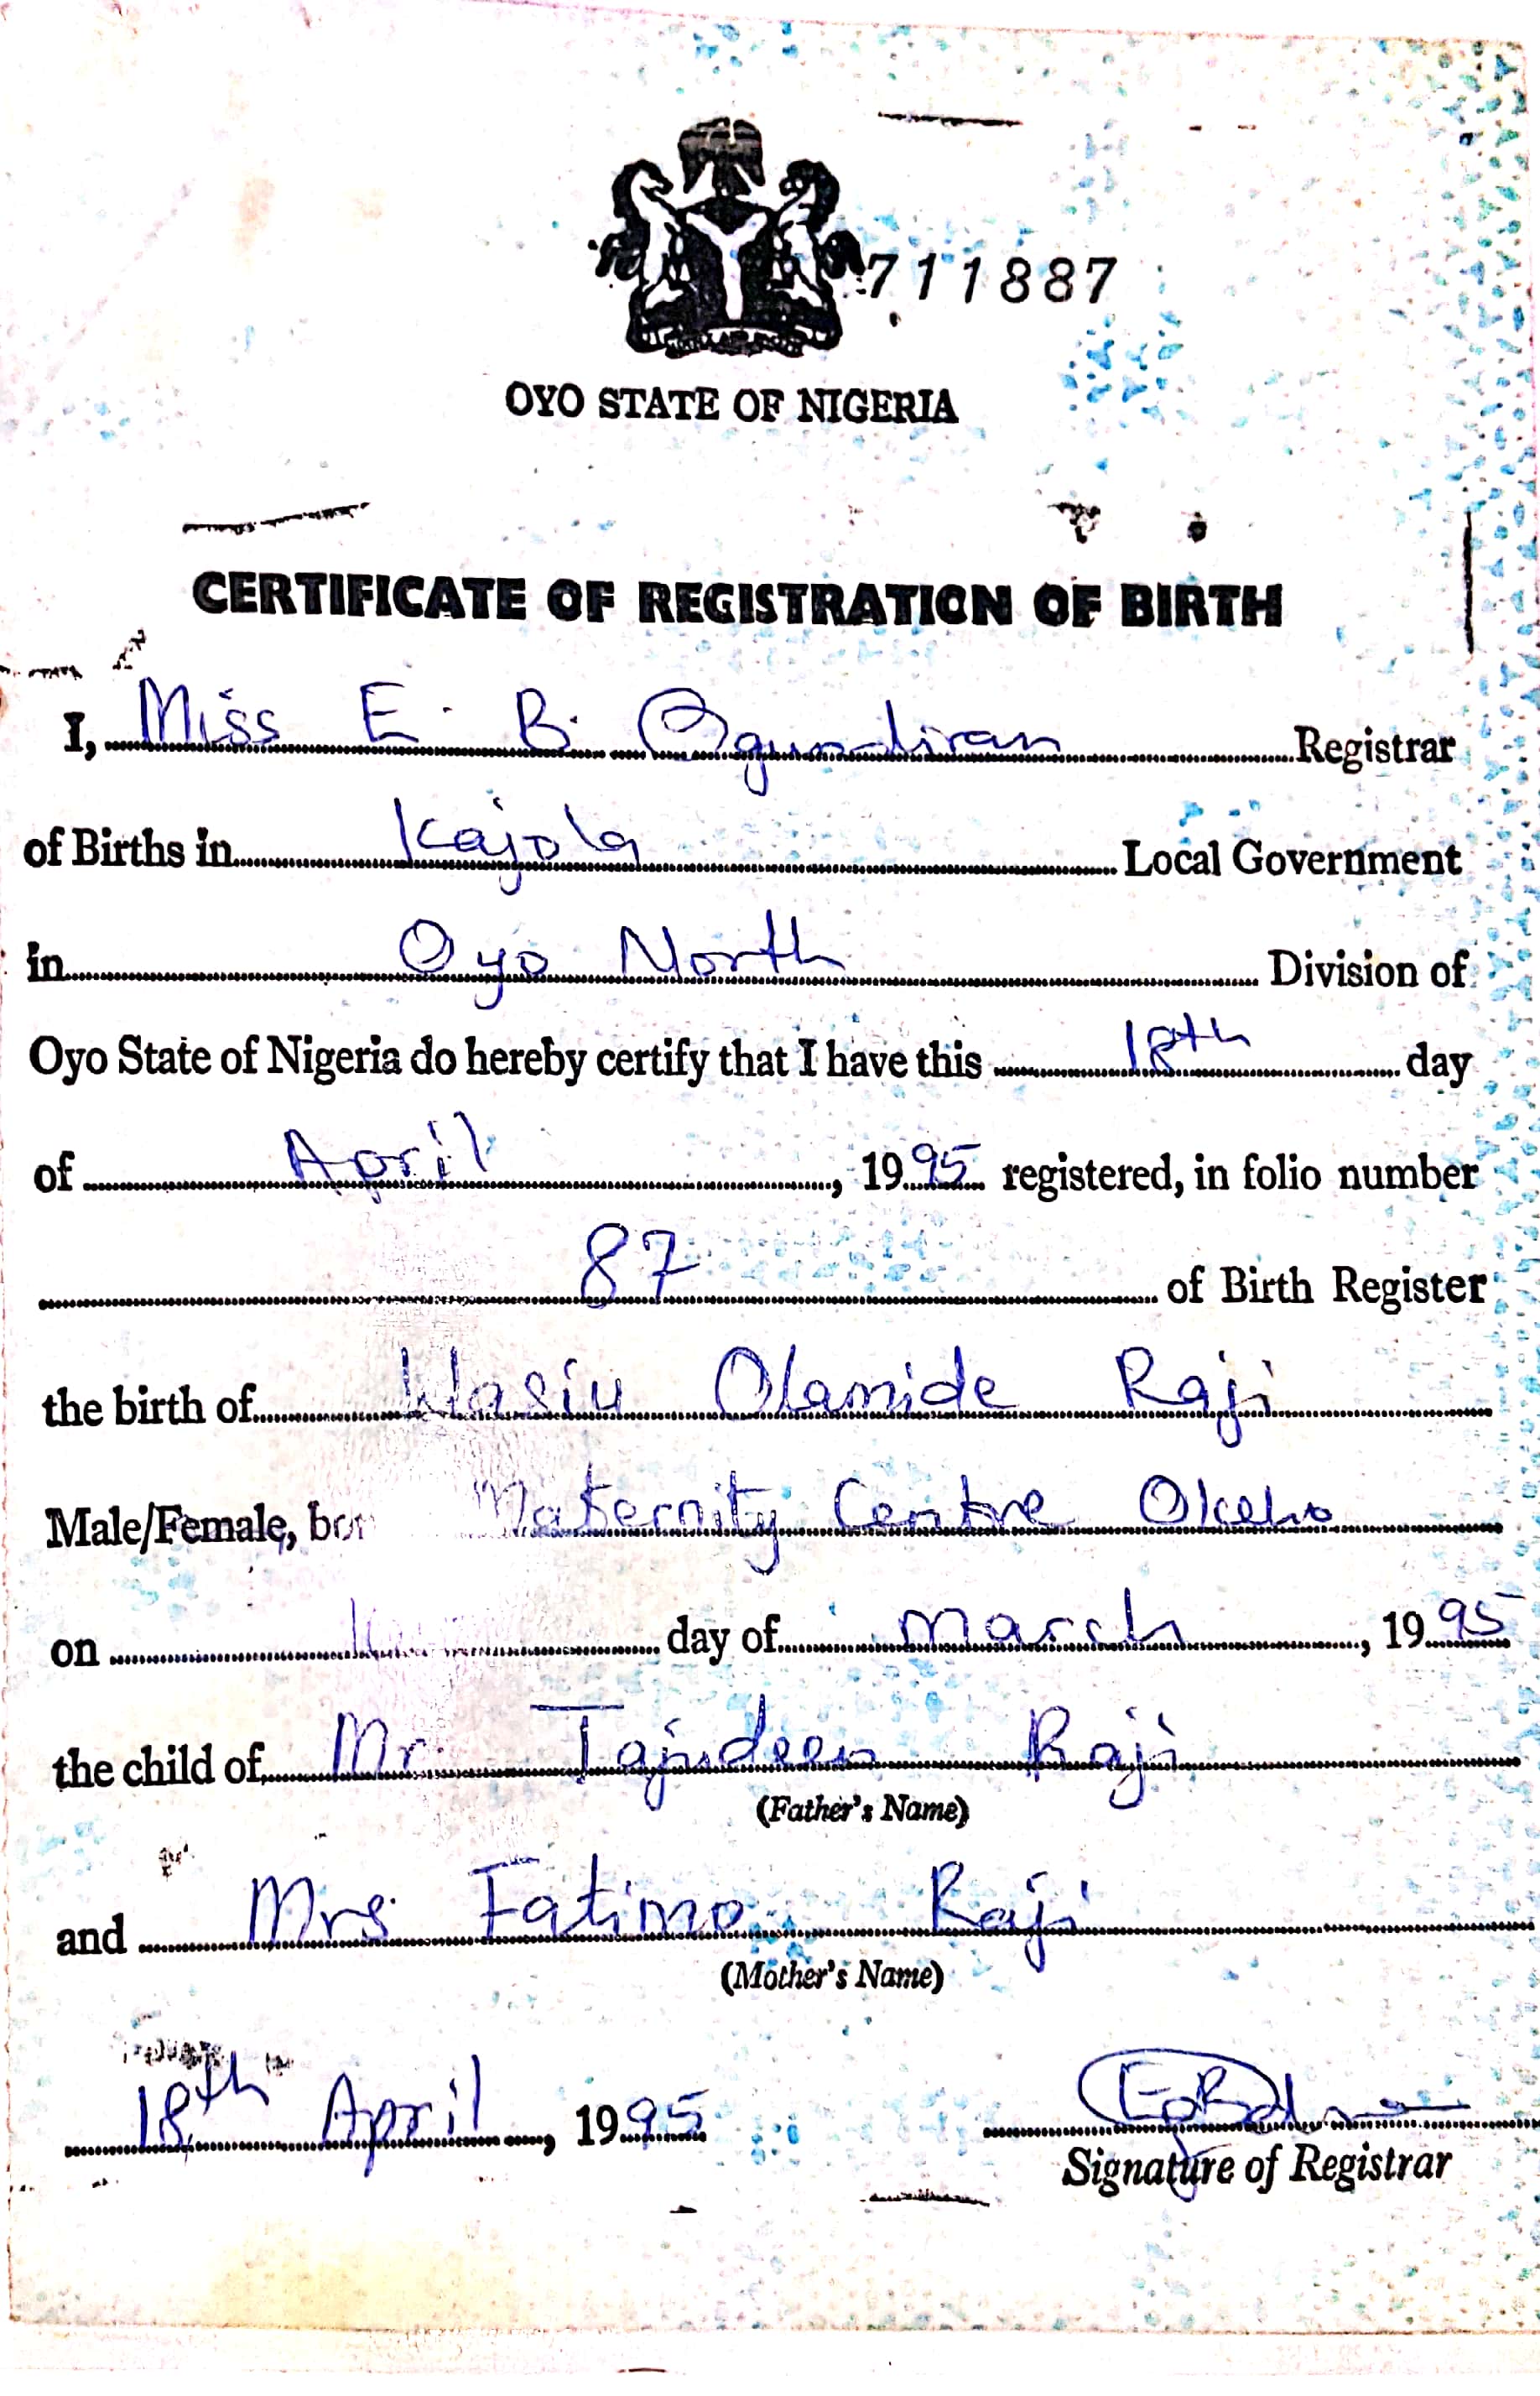 711887
OYO STATE OF NIGERIA
CERTIFICATE OF REGISTRATION OF BIRTH
I, Miss E. B. Ogundiran Registrar
of Births in Kajola Local Government
in Oyo North Division of
Oyo State of Nigeria do hereby certify that I have this 18th day
of April, 1995 registered, in folio number
87 of Birth Register
the birth of Wasiu Olamide Raji
Male/Female, Maternity Centre Okeho
on day of March, 1995
the child of Mr. Tajudeen Raji
(Father's Name)
and Mrs. Fatimo Raji
(Mother's Name)
18th April, 1995
Signature of Registrar